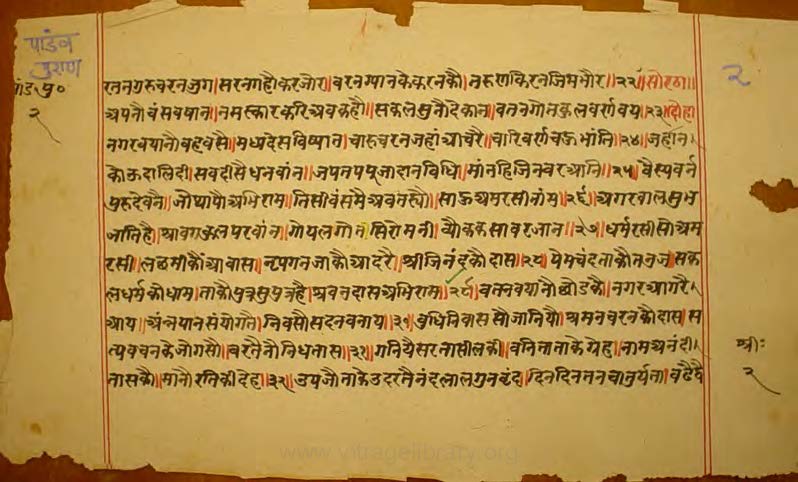 पांडव
पुराण
पांडपु०
२
२
रतनगुरुचरनजुग।सरनगहौकरजोर।वरनग्यानकेकरनकौ।तरुणकिरनजिमभौर॥२२॥सोरठा॥
अपनौवंसवषान।नमस्कारकरिअवकहौ।सकलसुनौदेकान।वतनगोतकुलवर्णवय॥२३॥दोहा
नगरवयानौबहुवसै।मध्यदेसविष्यात।चारुचरनजहांआचरै।चारिवर्णचऊभांति॥२४॥जहांन।
कोऊदालिदी।सवदीसैधनवांन।जपतपपूजादानविधि।मांनहिजिनवरआंनि॥२५॥वैस्यवर्न
पुरुदेवनै।जोथाप्यौअभिराम।तिसीवंसमैअवतस्यौ।साऊअमरसीनांम॥२६॥अगरवालसुभ
जातिहै।श्रावगकुलपरवांन।गोयलगोतसिरोमनी।व्यौकंकसावरजान॥२७॥धर्मरसीसोअम
रसी।लछमीकौआवास।नृपगनजाकौआदरै।श्रीजिनंदकौदास॥२८॥पेमचंदताकौतनुज।सक
लधर्मकोधाम।ताकौपुत्रसुपुत्रहै।श्रवनदासअभिराम॥२९॥वतनवयानोछोडकै।नगरआगरै।
आय।अंन्नपानसंयोगतै।निवसौसदनवनाय॥३०॥वुधिनिवाससोजानियौ।श्रमनचरनकोदास।स
त्यवचनकेजोगसौ।वरतैनौनिधतास॥३१॥गनियैसरनासीलकी।वनितानाकेगेह।नामअनंदी।
तासकौ।मानौरतिकीदेह॥३२॥उपजौताकेउदरतै।नंदलालगुनवृंद।दिनदिनतनचातुर्यता।वढैदै
श्रीः
२
www.vitragelibrary.org